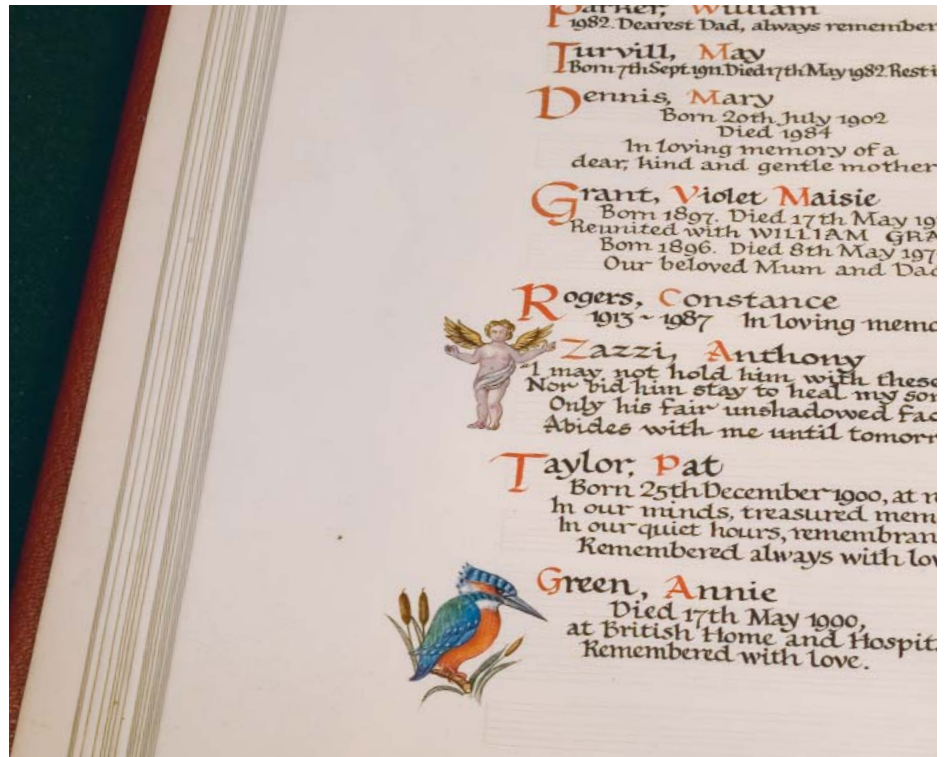 Parker, William
1982. Dearest Dad, always remember
Turvill, May
Born 7th Sept. 1911. Died 17th May 1982. Rest i
Dennis, Mary
Born 20th July 1902
Died 1984
In loving memory of a
dear, kind and gentle mother
Grant, Violet Maisie
Born 1897. Died 17th May 19
Reunited with WILLIAM GRA
Born 1896. Died 8th May 197
Our beloved Mum and Dad
Rogers, Constance
1913 ~ 1987 In loving memo
Zazzi, Anthony
"I may not hold him with these
Nor bid him stay to heal my sor
Only his fair unshadowed fac
Abides with me until tomorr
Taylor, Pat
Born 25th December 1900, at
In our minds, treasured mem
In our quiet hours, remembran
Remembered always with lov
Green, Annie
Died 17th May 1900,
at British Home and Hospit
Remembered with love.